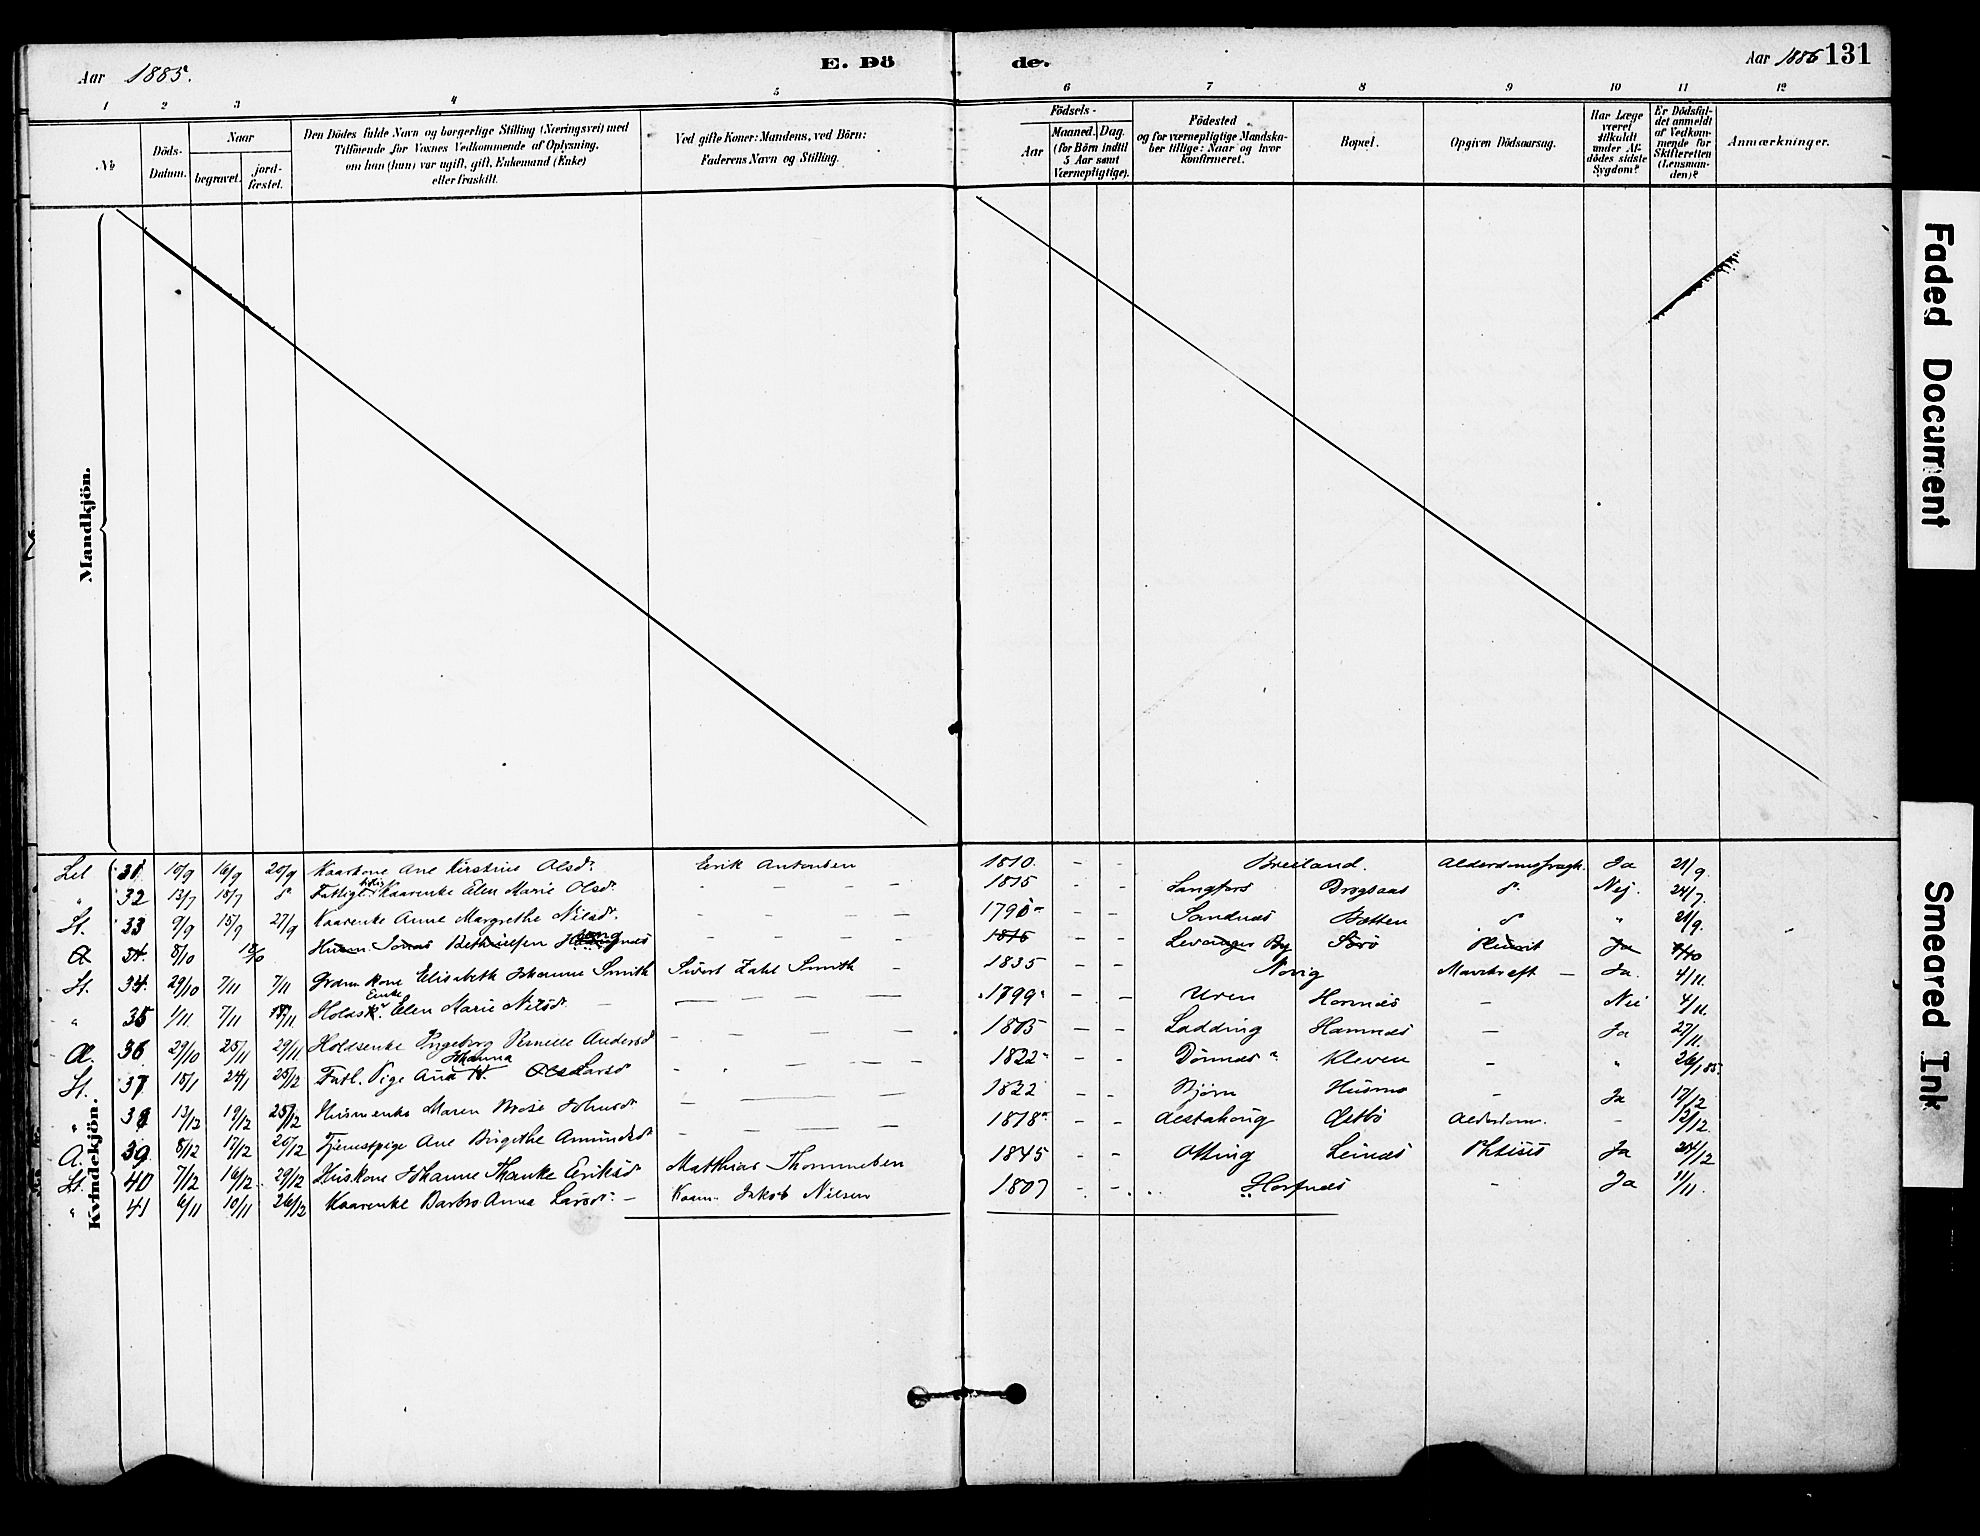 Aar 1885.
E. Dö
de.
Aar 1885 131
1 2 3 4 5 6 7 8 9 10 11 12
№
Döds-Datum.
Naar
begravet.
jord-fæstet.
Den Dödes fulde Navn og borgerlige Stilling (Næringsvei) med
Tilföiende for Voxnes Vedkommende af Oplysning,
om han (hun) var ugift, gift, Enkemand (Enke)
eller fraskilt.
Ved gifte Koner: Mandens, ved Börn:
Faderens Navn og Stilling.
Födsels-
Aar
Maaned. Dag.
(for Börn indtil
5 Aar samt
Værnepligtige).
Födested
og for værnepligtige Mandska-
ber tillige: Naar og hvor
konfirmeret.
Bopæl.
Opgiven Dödsaarsag.
Har Læge
været
tilkaldt
under Af-
dødes sidste
Sygdom?
Er Dödsfal-
det anmeldt
af Vedkom-
mende for
Skifteretten
(Lensman-
den)?
Anmærkninger.
Mandkjön.
Kvindekjön.
31 10/9 16/9 20/9 Kaarkone Ane Kirstine Olsdr. Eerik Antonsen 1810. - - Breiland. Alderdomssvagh. Ja 21/9.
" 32 13/7 18/7 Kaarenke Elen Marie Olsdr. - - - - 1815 - - Langfors Drogsaas Nej. 24/7.
St. 33 9/9 15/9 27/9 Kaarenke Anne Margrethe Nilsdr. - - - - - - Sandnes Botten " 21/9.
8/10 18/10 1816 Levanger By Sörö Pleurit Ja
St. 34. 29/10 7/11 7/11 Elisabeth Johanne Smith Sivert Zahl Smith - 1835 - - Navig - Ja. 4/11.
" 35 1/11 7/11 Enke Elen Marie Nilsd. - - - - - 1799 - - Uren Hornnes - Nei 4/11.
Æ. 36 29/10 25/11 29/11 Holdsenke Ingeborg Pernelle Andersd - - - - 1805 - - Ladding Hamnes - Ja 27/11.
St. 37 15/1 24/1 25/12 Fatl. Pige Ana Johanna Larsd - - - - - 1822 - - Dönnes Kleven - " 26/1 85.
" 38 13/12 19/12 25/12 Husmenke Maren Johnsd. - - - - 1822 - - Bjørn Husmo - Ja 17/12
A. 39 8/12 17/12 20/12 Tjenestpige Ane Birgithe Amundsd - - - - 1878 - - Alstahoug Alderdom. - 12/12.
St. 40 7/12 16/12 29/12 Huskone Johanne Thanke Eriksd Matthias Thommesen 1845 - - Otting Leines Phtisis Ja 24/12
" 41 6/11 10/11 26/12 Kaarenke Barbro Anna Larsd. - Kaarm. Jakob Nilsen 1807 - - Horfnes - Ja 11/11.
Faded Document
Smeared Ink